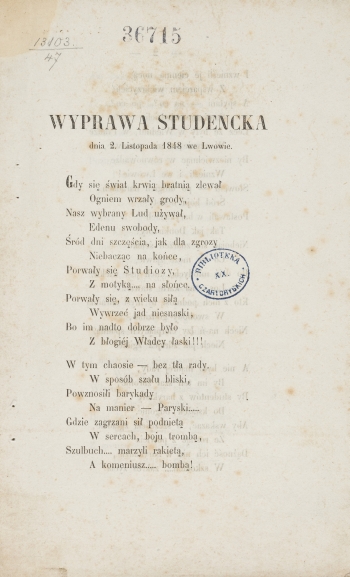 36715
13103
47
WYPRAWA STUDENCKA
dnia 2. Listopada 1848 we Lwowie.
Gdy się świat krwią bratnią zlewał
Ogniem wrzały grody,
Nasz wybrany Lud używał,
Edenu swobody,
Śród dni szczęścia, jak dla zgrozy
Niebacząc na końce,
Porwały się Studiozy,
Z motyką.... na słońce.
Porwały się, z wieku siłą
Wywrzeć jad niesnaski,
Bo im nadto dobrze było
Z błogiéj Władcy łaski!!!
W tym chaosie — bez tła rady.
W sposób szału bliski,
Powznosili barykady
Na manier — Paryski.....
Gdzie zagrzani sił podnietą
W sercach, boju trombą,
Szulbuch.... marzyli rakietą,
A komeniusz..... bombą!
BIBLIOTEKA
XX.
CZARTORYSKICH